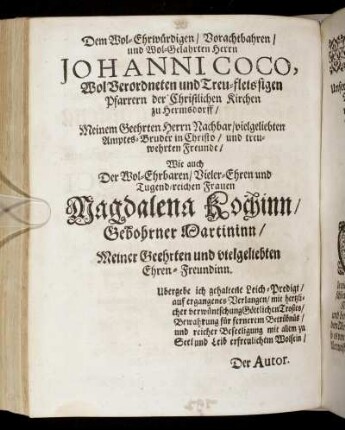 Dem Wol-Ehrwürdigen/ Vorachtbahren/
und Wol-Gelahrten Herrn
JOHANNI COCO,
Wol Verordneten und Treu-fleissigen
Pfarrern der Christlichen Kirchen
zu Hermsdorff/
Meinem Geehrten Herrn Nachbar/ vielgeliebten
Amptes-Bruder in Christo/ und treu-
wehrten Freunde/
Wie auch
Der Wol-Ehrbaren/ Vieler-Ehren und
Tugendreichen Frauen
Magdalena Kochinn/
Gebohrner Martininn/
Meiner Geehrten und vielgeliebten
Ehren-Freundinn.
Übergebe ich gehaltene Leich-Predigt/
auf ergangenes Verlangen/ mit hertzli-
cher verwüntschung Göttlichen Trostes/
Bewahrung für fernerem Betrübnüß/
und reicher Beseeligung mit allem zu
Seel und Leib erfreulichem Wolsein/
Der Autor.